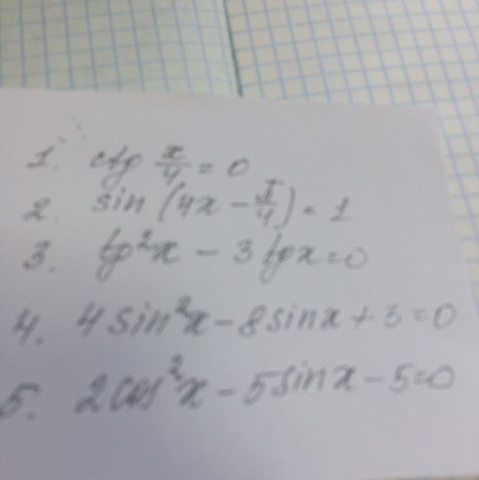 1. ctg x/4 = 0
2. sin (4x - π/4) = 1
3. tg²x - 3 tgx = 0
4. 4 sin²x - 8 sinx + 3 = 0
5. 2cos²x - 5sinx - 5 = 0